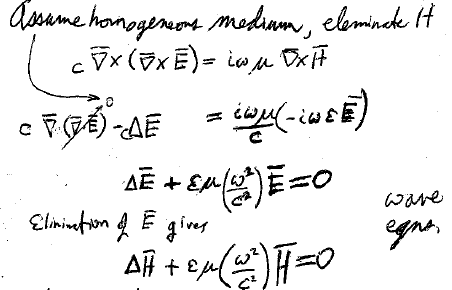 Assume homogeneous medium, eleminate H
c ∇̅×(∇̅×E̅) = iωμ ∇̅×H̅
c ∇̅(∇̅E̅)⁰ - cΔE̅ = iωμ/c (-iωεE̅)
ΔE̅ + εμ(ω²/c²)E̅ = 0
wave
Elimination of E̅ gives
eqns.
ΔH̅ + εμ(ω²/c²)H̅ = 0